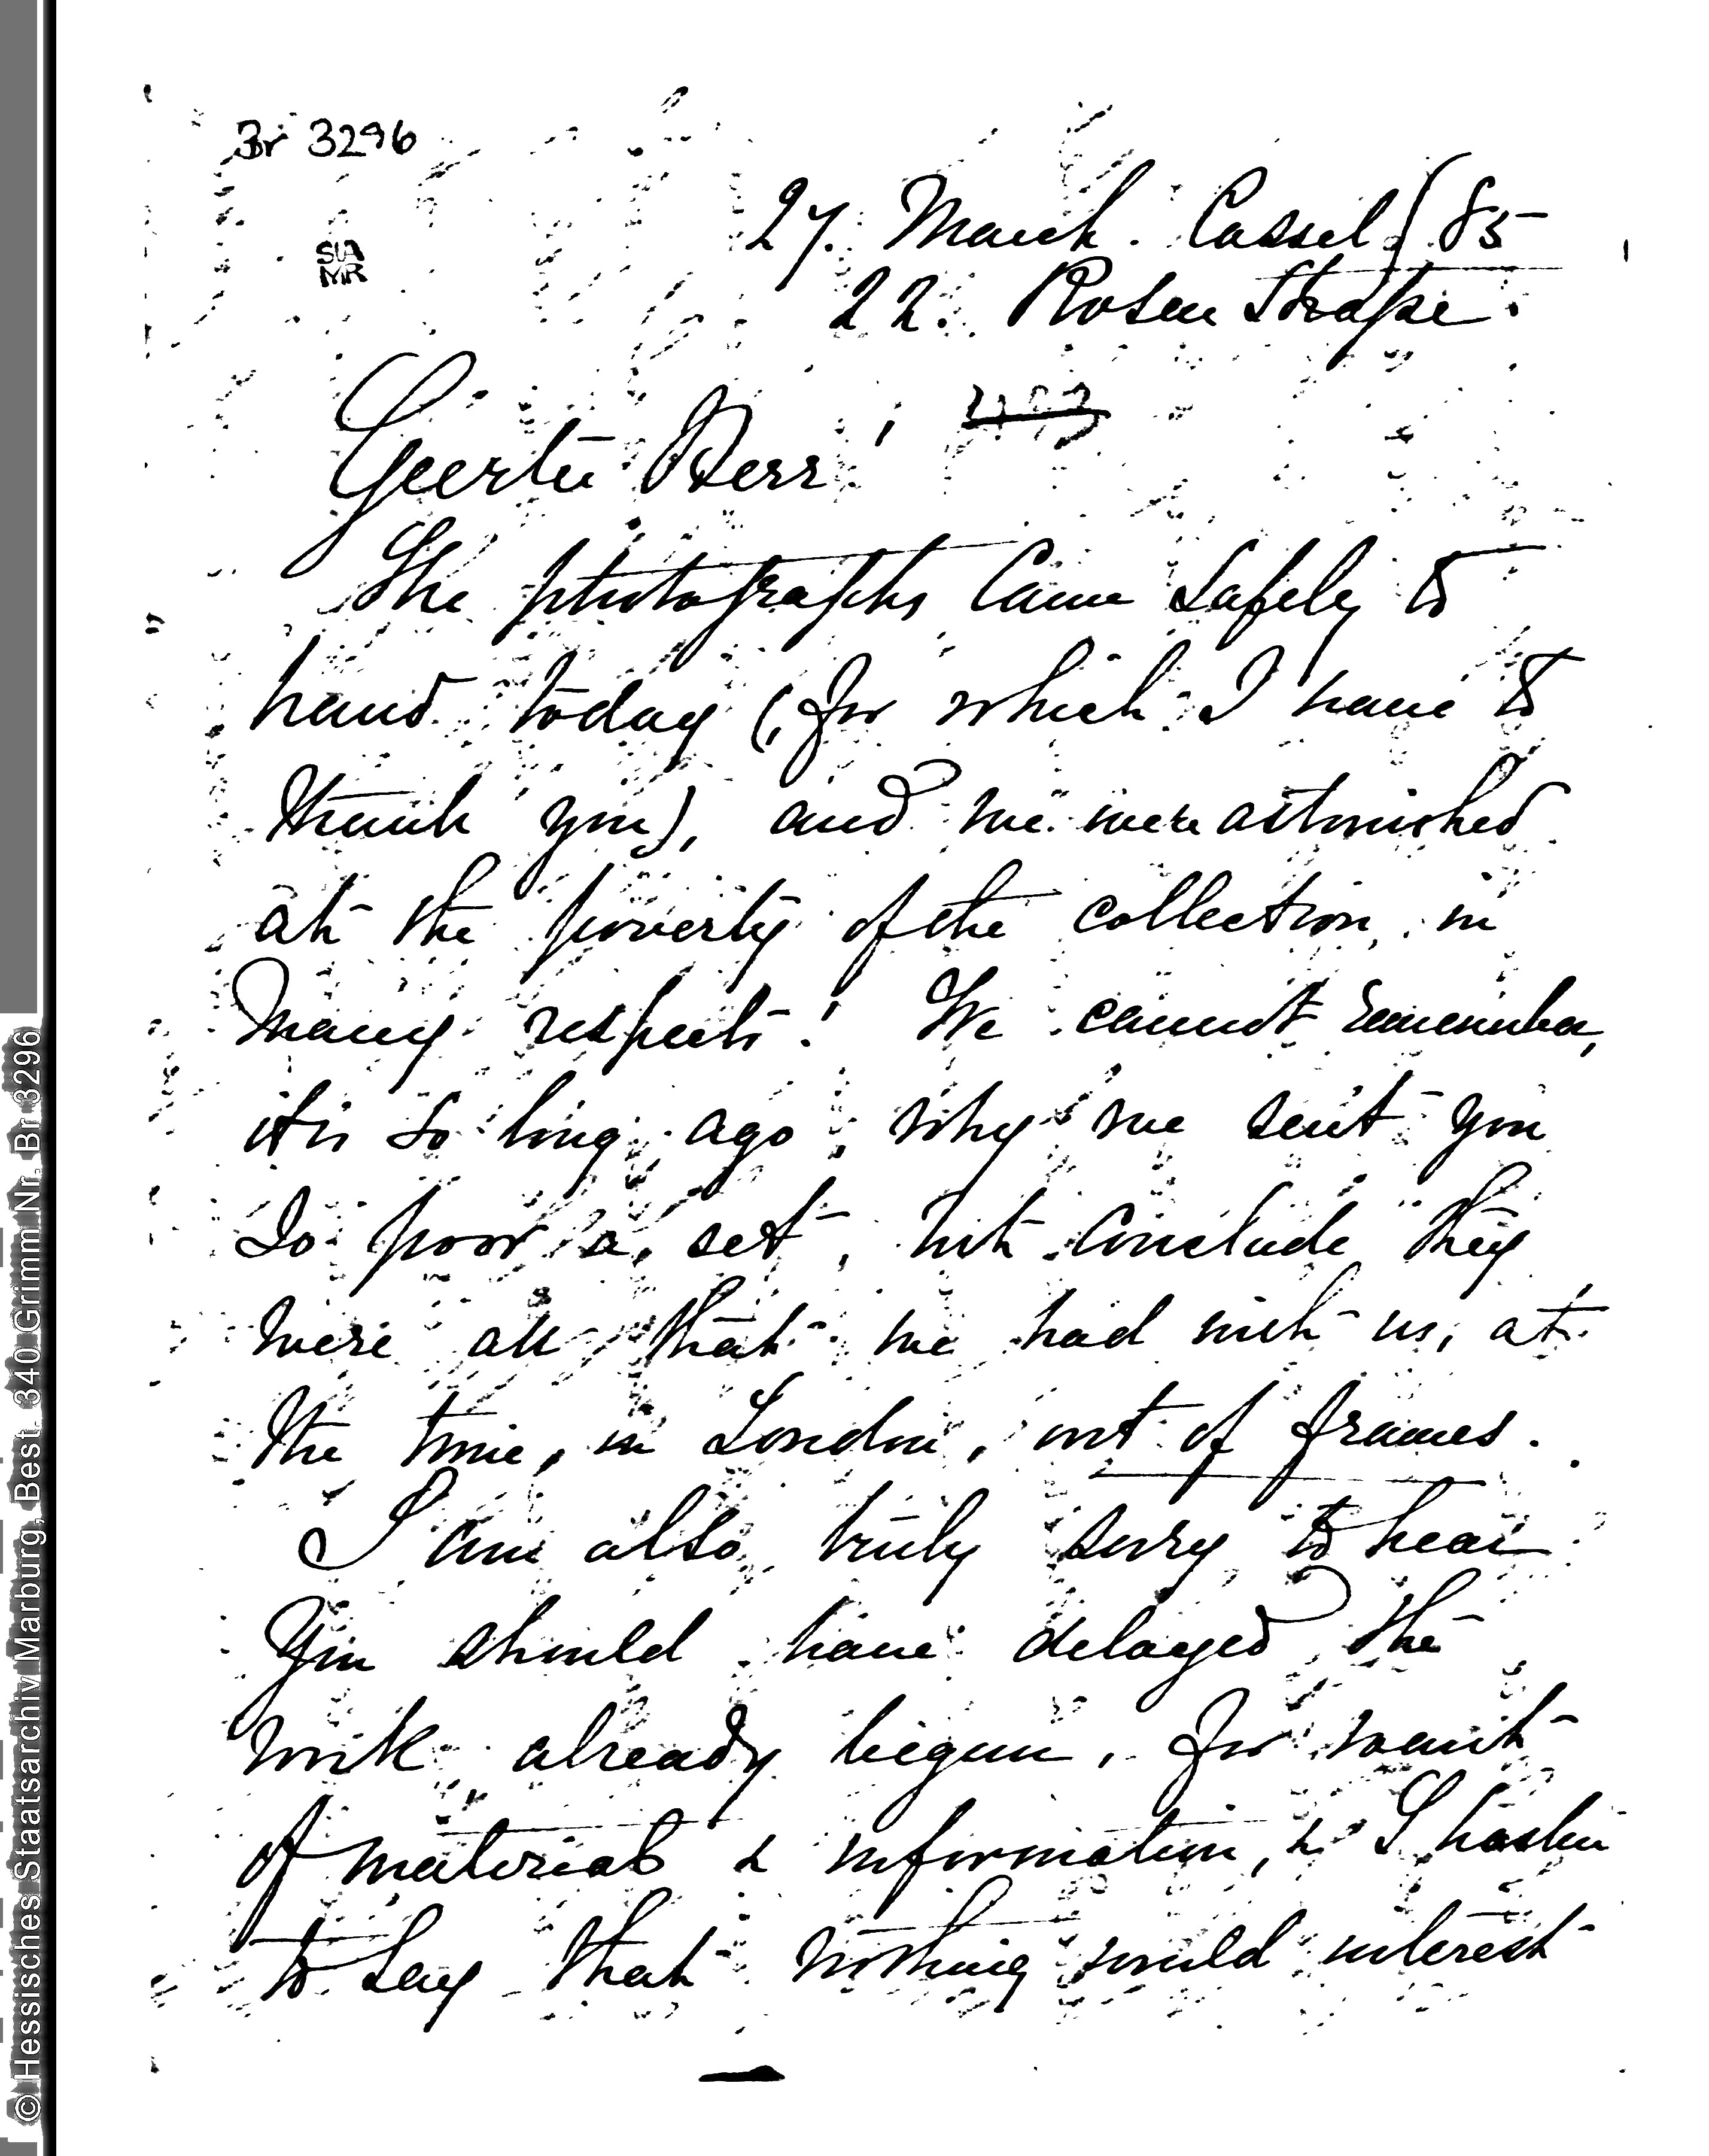 Br 3296
StA
MR
27. March. Cassel / 85
22. Rosen Straße.
Geerter Herr,
The photographs came safely to
hand today (for which I have to
thank you), and we were astonished
at the poverty of the collection, in
many respects! We cannot remember,
it is so long ago, why we sent you
so poor a set, but conclude they
were all that we had with us, at
the time, in London, out of frames.
I am also truly sorry to hear
you should have delayed the
work already begun, for want
of material & information, & I hasten
to say that nothing would interest
© Hessisches Staatsarchiv Marburg, Best. 340 Grimm Nr. Br 3296